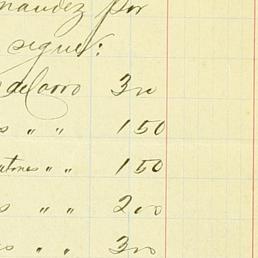 nandez por
sigue:
de Carro 3 00
s " " 1 50
atones " " 1 50
s " " 2 00
es " " 3 00